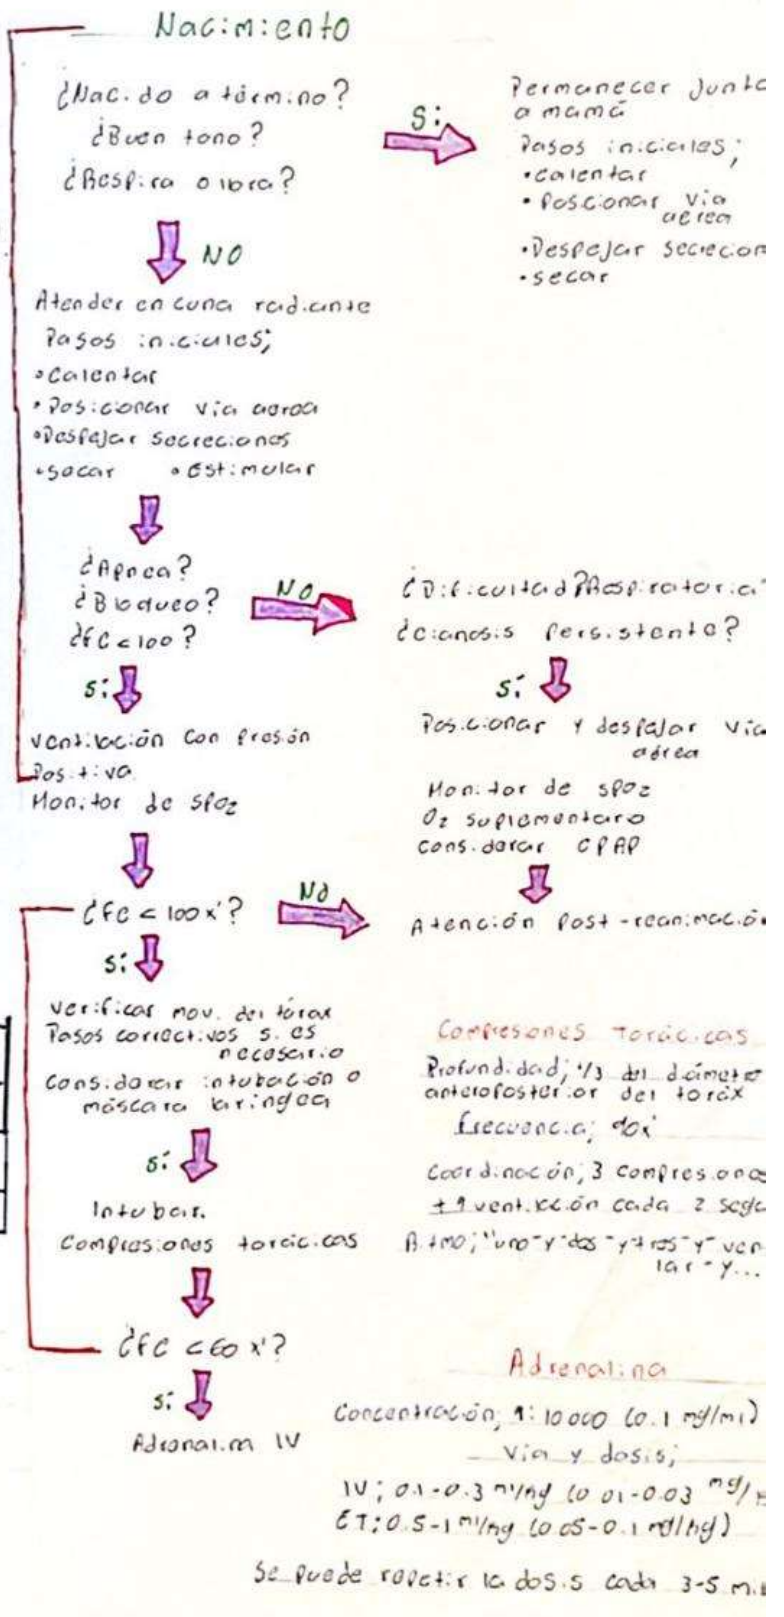 Nacimiento
¿Nacido a término?
¿Buen tono?
¿Respira o llora?
Sí
Permanecer junto
a mamá
Pasos iniciales;
•calentar
•Poscionar vía
aerea
•Despejar secrecion
•secar
NO
Atender en cuna radiante
Pasos iniciales;
•Calentar
•Posicionar vía aerea
•Despejar secreciones
•secar •Estimular
¿Apnea?
¿Bloqueo?
¿FC < 100?
NO
¿Dificultad Respiratoria?
¿cianosis Persistente?
sí
ventilación con Presión
Positiva
Monitor de SPO2
sí
Posicionar y despejar vía
aérea
Monitor de SPO2
O2 suplementaro
considerar CPAP
¿FC < 100 x'?
No
Atención Post-reanimación
sí
verificar mov. del tórax
Pasos correctivos si es
necesario
Considerar intubación o
máscara laríngea
sí
Intubar.
Compresiones torácicas
¿FC < 60 x'?
sí
Adrenalina IV
Compresiones Torácicas
Profundidad; 1/3 del diametro
anteroposterior del toráx
Frecuencia; 90x'
Coordinación; 3 compresiones
+ 1 ventilación cada 2 seg
Ritmo; "uno-y-dos-y-tres-y-ven
lar-y...
Adrenalina
Concentración; 1:10000 (0.1 mg/ml)
Vía y dosis;
IV; 0.1-0.3 ml/kg (0.01-0.03 mg/
ET; 0.5-1 ml/kg (0.05-0.1 mg/kg)
Se Puede repetir la dosis cada 3-5 min